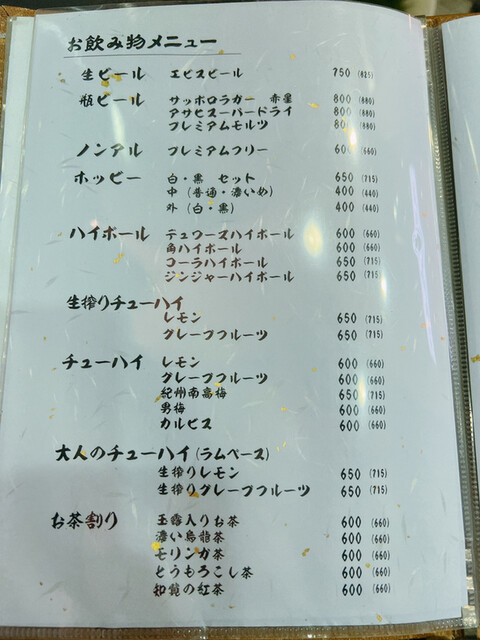 お飲み物メニュー
生ビール エビスビール 750 (825)
瓶ビール サッポロラガー 赤星 800 (880)
アサヒスーパードライ 800 (880)
プレミアムモルツ 800 (880)
ノンアル プレミアムフリー 600 (660)
ホッピー 白・黒 セット 650 (715)
中 (普通・濃いめ) 400 (440)
外 (白・黒) 400 (440)
ハイボール デュワーズハイボール 600 (660)
角ハイボール 600 (660)
コーラハイボール 650 (715
ジンジャーハイボール 650 (715
生搾りチューハイ
レモン 650 (715)
グレープフルーツ 650 (715)
チューハイ レモン 600 (660)
グレープフルーツ 600 (660)
紀州南高梅 650 (715)
男梅 600 (660)
カルピス 600 (660)
大人のチューハイ (ラムベース)
生搾りレモン 650 (715)
生搾りグレープフルーツ 650 (715)
お茶割り 玉露入りお茶 600 (660)
濃い烏龍茶 600 (660)
モリンガ茶 600 (660)
とうもろこし茶 600 (660)
知覧の紅茶 600 (660)